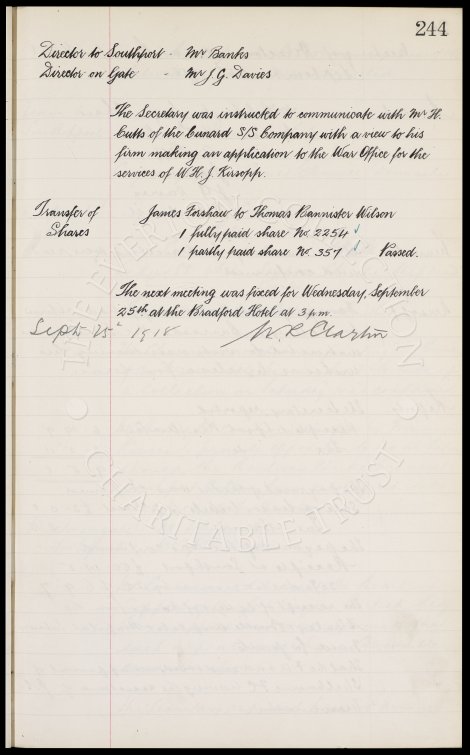 244
Director to Southport - Mr Banks
Director on Gate - Mr J. G. Davies
The Secretary was instructed to communicate with Mr H.
Cutts of the Cunard S/S Company with a view to his
firm making an application to the War Office for the
services of W. H. J. Kirsopp.
Transfer of Shares
James Forshaw to Thomas Bannister Wilson
1 fully paid share No. 2254 ✓
1 partly paid share No. 357 ✓ Passed.
The next meeting was fixed for Wednesday, September
25th at the Bradford Hotel at 3 p.m.
Sept 25th 1918 W. R. Clayton
THE EVERTON COLLECTION
CHARITABLE TRUST